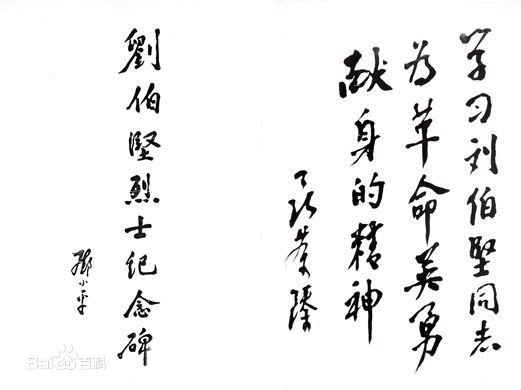 学习刘伯坚同志
为革命英勇
献身的精神
聂荣臻
劉伯堅烈士纪念碑
邓小平
Baidu百科